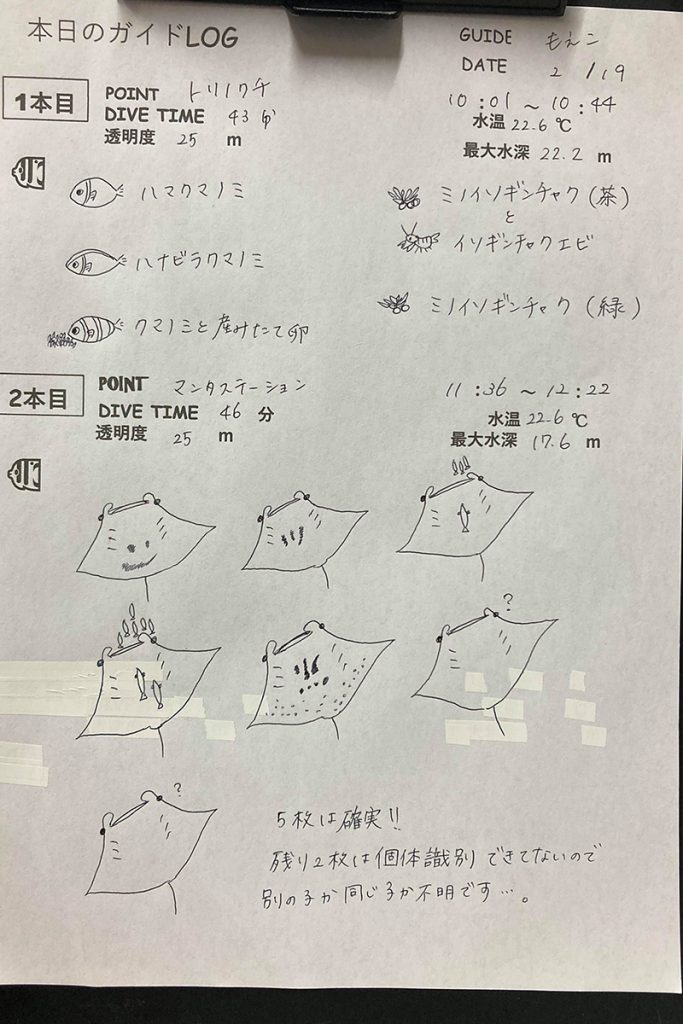 本日のガイドLOG
GUIDE もえこ
DATE 2/19
1本目
POINT トリノクチ
DIVE TIME 43分
透明度 25 m
10:01～10:44
水温 22.6℃
最大水深 22.2 m
ハマクマノミ
ミノイソギンチャク(茶)
と
イソギンチャクエビ
ハナビラクマノミ
ミノイソギンチャク(緑)
クマノミと産みたて卵
2本目
POINT マンタステーション
DIVE TIME 46 分
透明度 25 m
11:36～12:22
水温 22.6℃
最大水深 17.6 m
?
?
5枚は確実!!
残り2枚は個体識別できてないので
別の子か同じ子か不明です…。